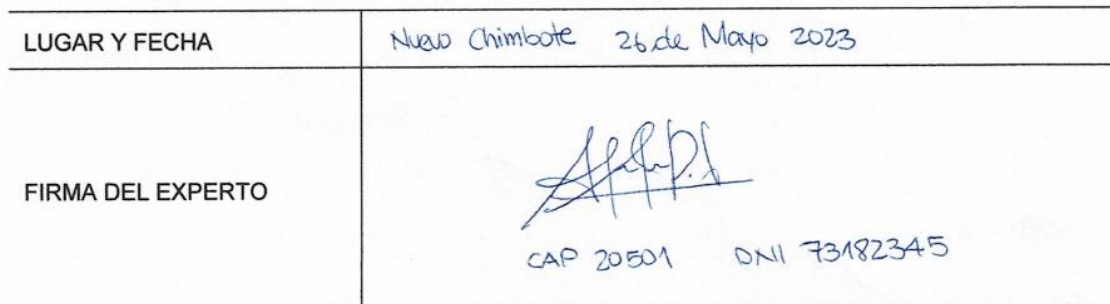 LUGAR Y FECHA Nuevo Chimbote 26 de Mayo 2023
FIRMA DEL EXPERTO
CAP 20501 DNI 73182345